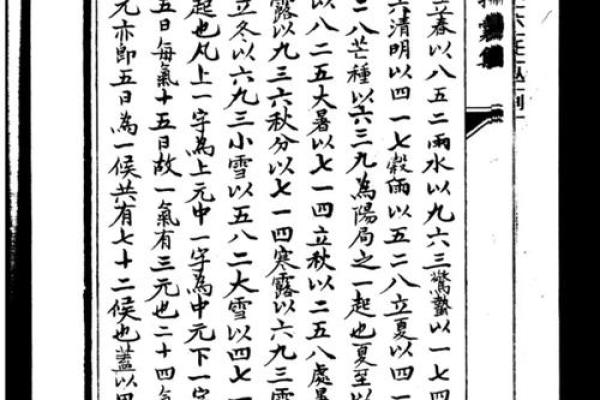 立春以八五二雨水以九六三驚蟄以一七四
六清明以四一七穀雨以五二八立夏以四一
二八芒種以六三九為陽局之一起也夏至以
以八二五大暑以七一四立秋以二五八處暑
露以九三六秋分以七一四寒露以六九三霜
立冬以六九三小雪以五八二大雪以四七一
起也凡上一字為上元中一字為中元下一字
五日每氣十五日故一氣有三元也二十四氣
元亦即五日為一候共有七十二候也蓋以四